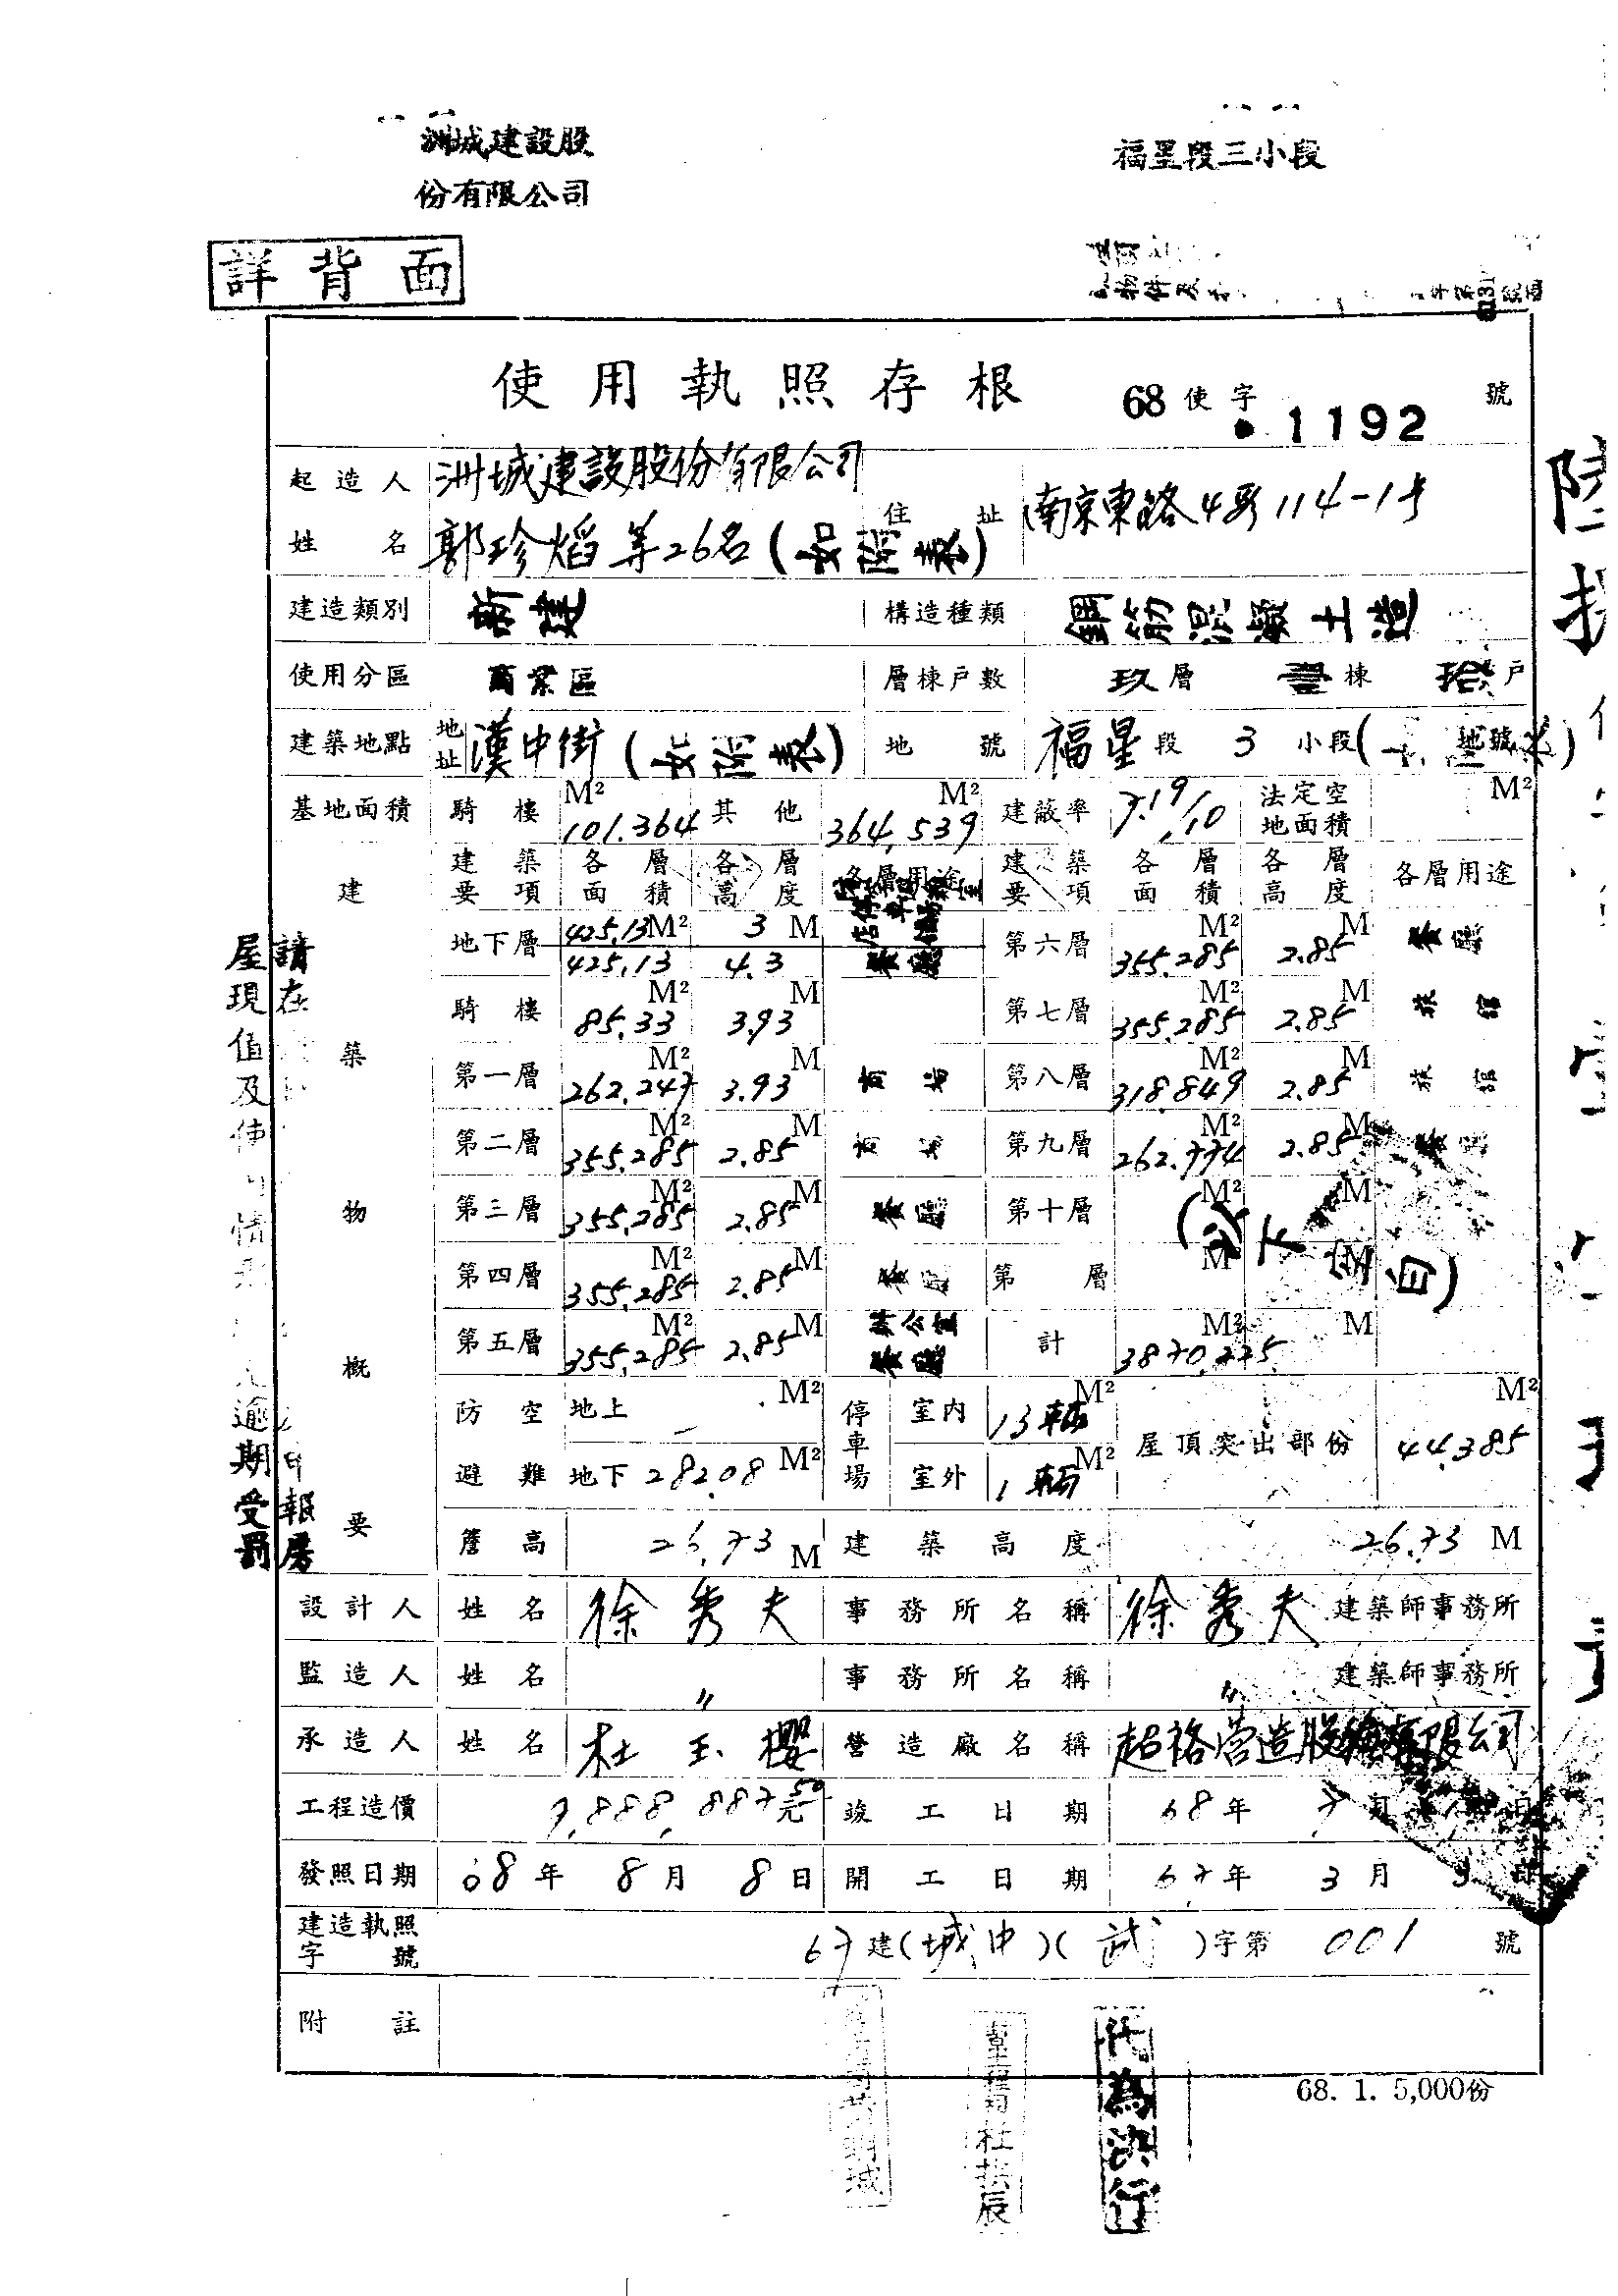 洲城建設股
份有限公司
福星段三小段
詳背面
使用執照存根 68 使字 1192 號
起造人姓名 洲城建設股份有限公司
郭珍焰等26名(如附表)
住址 南京東路4段114-1号
建造類別 新建 構造種類 鋼筋混凝土造
使用分區 商業區 層棟戶數 玖層 壹棟 拾 戶
建築地點 地址 漢中街(如附表) 地號 福星段 3 小段( 地號 )
基地面積 騎樓 101.364 M² 其他 364,539 M² 建蔽率 法定空地面積 M²
建築物概要
建築要項 各層面積 各層高度 各層用途 建築要項 各層面積 各層高度 各層用途
地下層 425.13 M² 3 M 第六層 355.285 M² 2.85 M 餐廳
425.13 4.3 餐廳
騎樓 85.33 M² 3.93 M 第七層 355.285 M² 2.85 M 旅館
第一層 262.247 M² 3.93 M 商場 第八層 318.849 M² 2.85 M 旅館
第二層 355.285 M² 2.85 M 商場 第九層 262.774 M² 2.85 M
第三層 355.285 M² 2.85 M 餐廳 第十層 M² M
(以下空白)
第四層 355.285 M² 2.85 M 餐廳 第 層 M M
第五層 355.285 M² 2.85 M 辦公室 餐廳 計 3870.225 M² M
防空避難 地上 — M² 停車場 室內 13輛 M² 屋頂突出部份 44.385 M²
地下 282.08 M² 室外 1輛 M²
簷高 26.73 M 建築高度 26.73 M
設計人 姓名 徐秀夫 事務所名稱 徐秀夫 建築師事務所
監造人 姓名 〃 事務所名稱 〃 建築師事務所
承造人 姓名 杜玉櫻 營造廠名稱 超裕營造股份有限公司
工程造價 7,888,887.50元 竣工日期 68年 7月 日
發照日期 68年 8月 8日 開工日期 67年 3月 日
建造執照字號 67建(城中)(武)字第 001 號
附註
68. 1. 5,000份
請在
屋現值及使
情
逾期受罰
申報房
代為決行